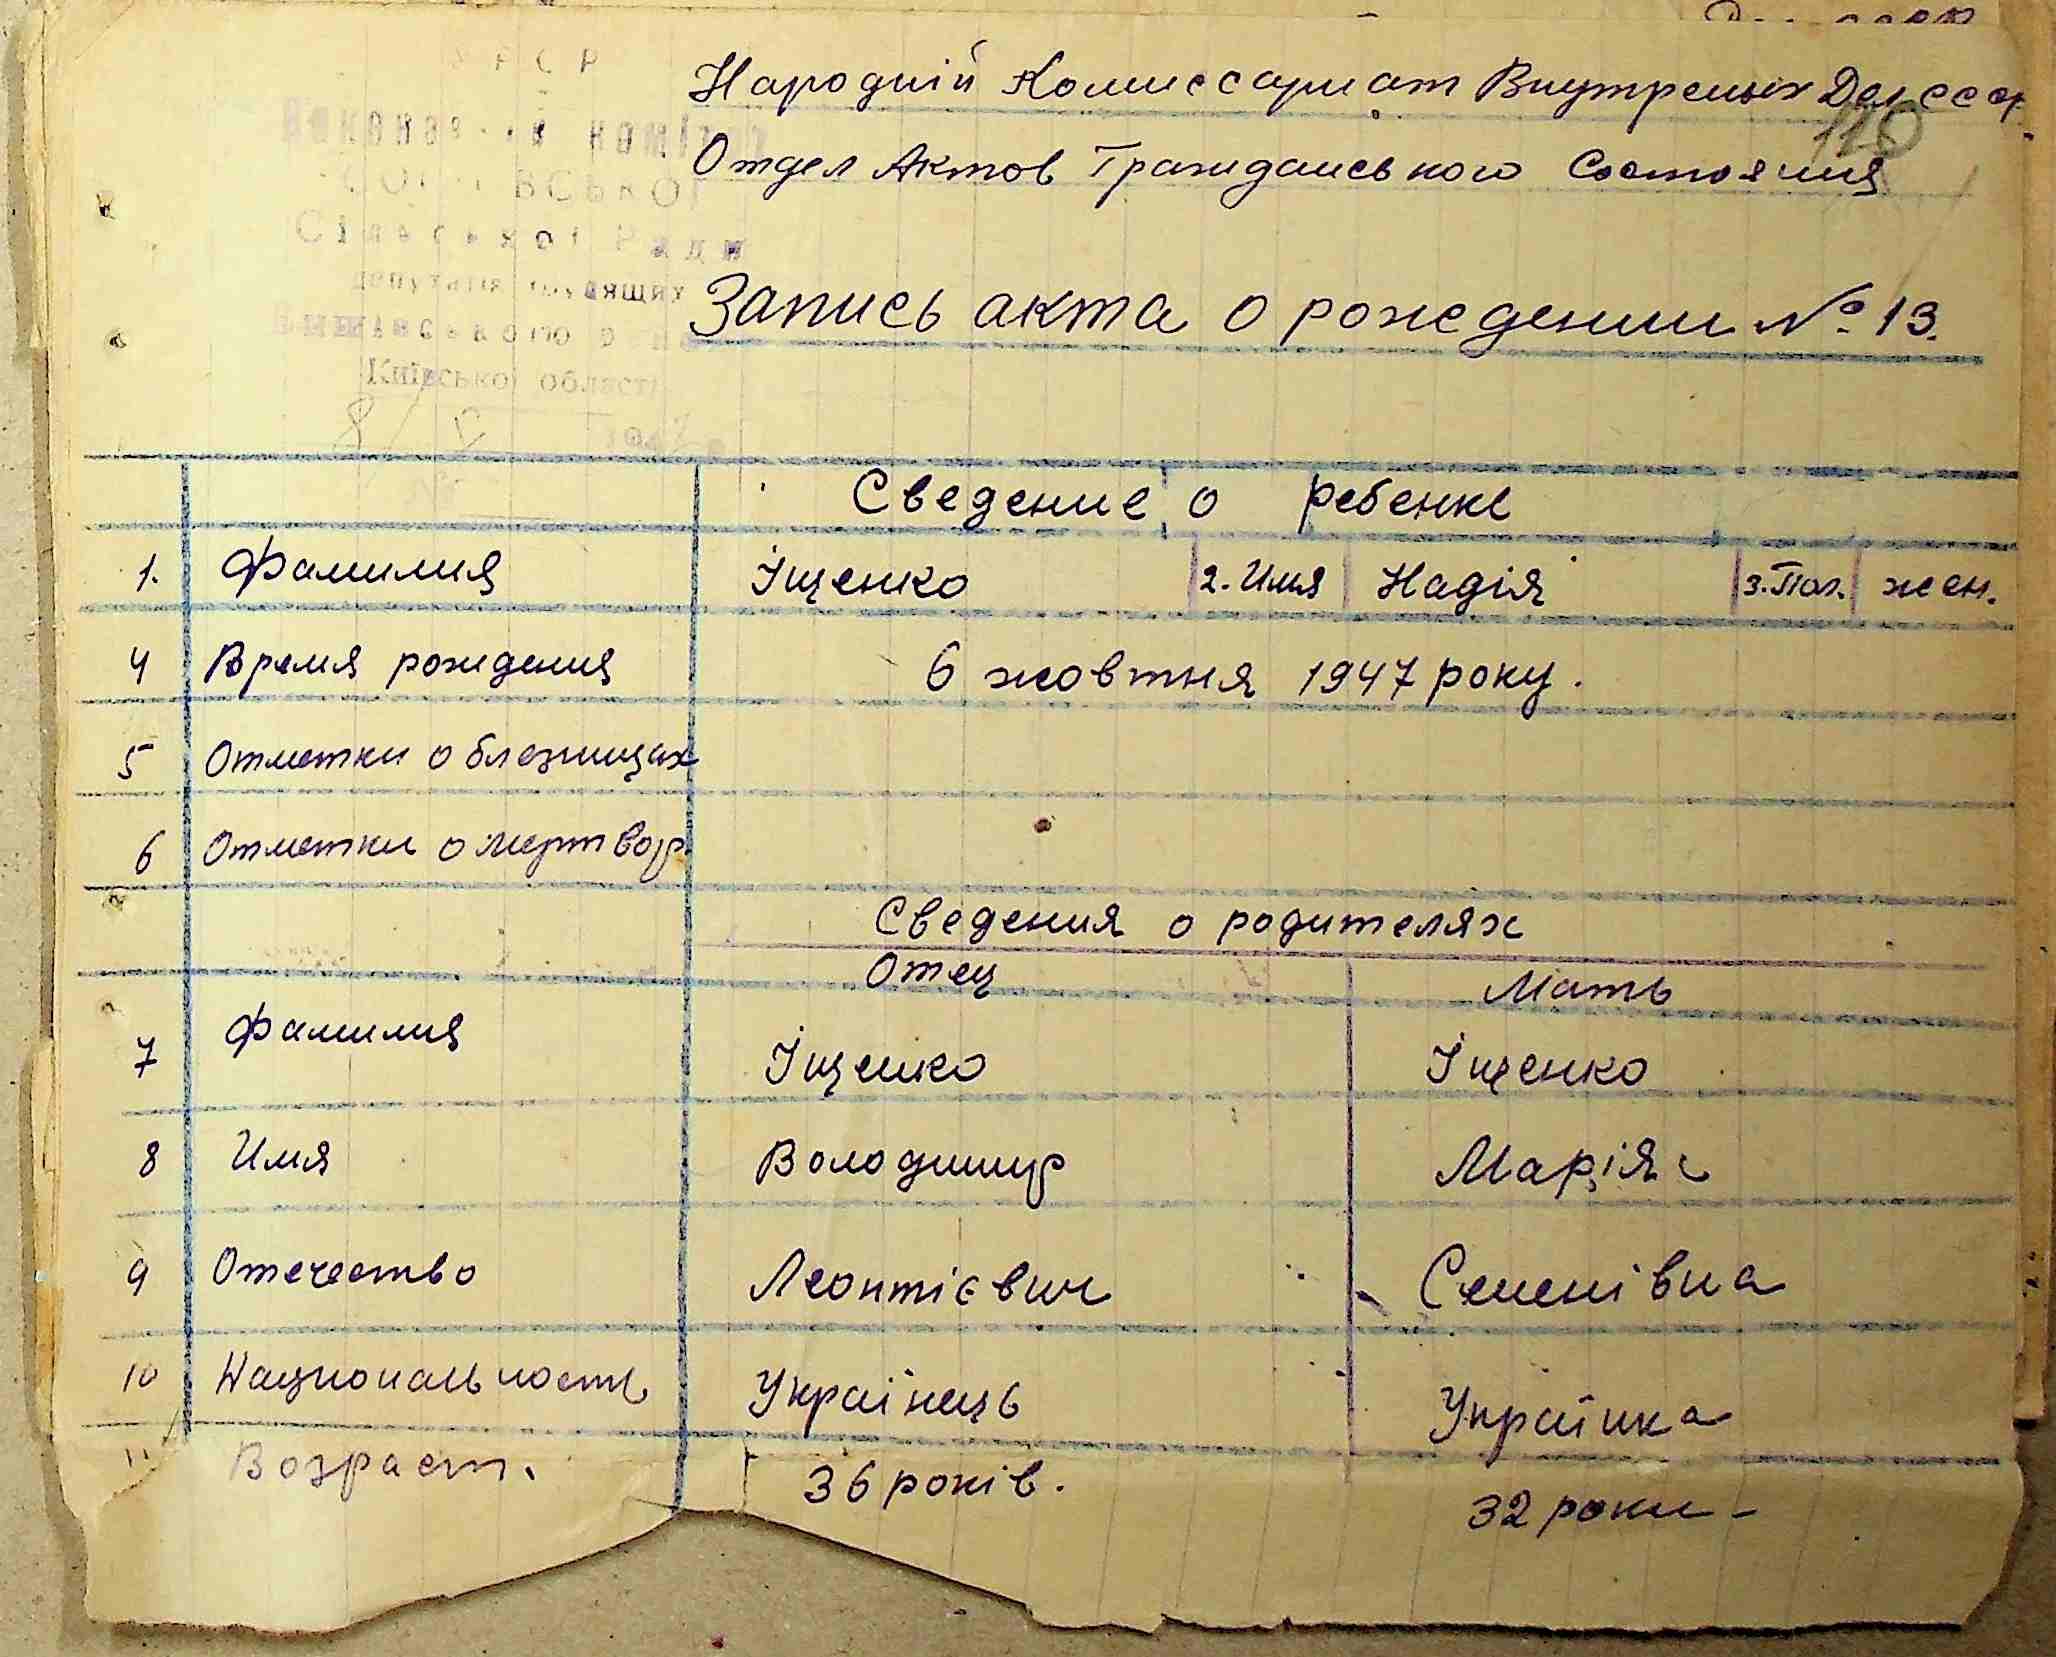 УРСР
Народній Комиссариат Внутреных Дел СССР
120
комітет
Отдел Актов Гражданського Состояния
Сільської Ради
депутатів трудящих
Запись акта о рождении № 13.
Київської області
8
Сведение о ребенке
1. Фамилия Іщенко 2. Имя Надія 3. Пол. жен.
4 Время рождения 6 жовтня 1947 року.
5 Отметки о близницах
6 Отметки о мертвор.
Сведения о родителях
Отец Мать
7 Фамилия Іщенко Іщенко
8 Имя Володимир Марія
9 Отечество Леонтієвич Семенівна
10 Националь ность Українець Українка
11 Возраст. 36 років. 32 роки -